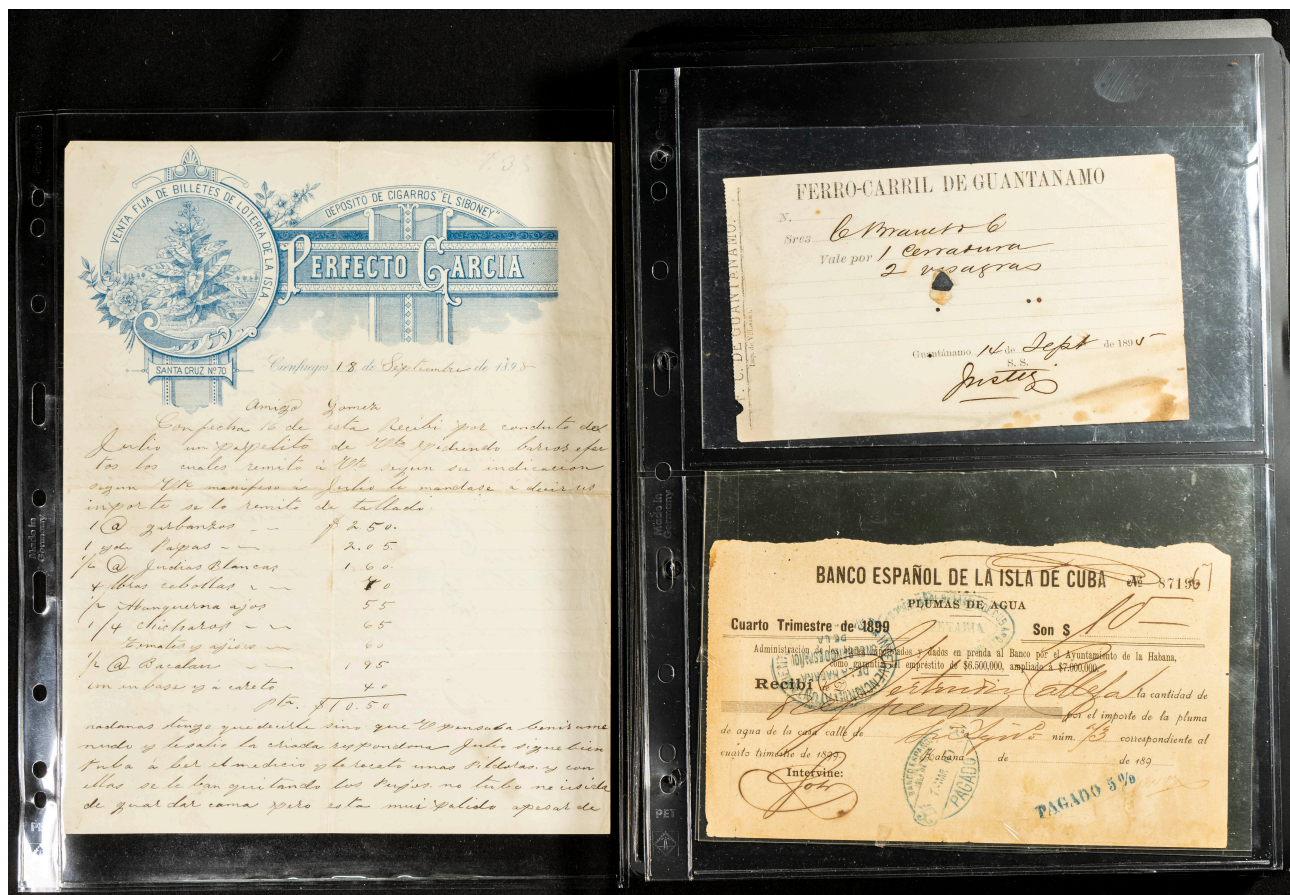 VENTA FIJA DE BILLETES DE LOTERIA DE LA ISLA
DEPOSITO DE CIGARROS "EL SIBONEY"
PERFECTO GARCIA
SANTA CRUZ Nº 70
Cienfuegos 18 de Septiembre de 189
Amigo Gomez
Con fecha 16 de esta Recibi por conducto del
Julio un papelito de Vto pidiendo barios efec
tos los cuales remito á Vto segun su indicacion
segun Vto manifeso á Julio le mandase a decir
importe se lo remito de tallado.
1 @ garbanzos $ 2 50.
1 Papas 2.05.
1/2 @ Judias Blancas 1 60
4 lbras cebollas
1/2 Manquerna ajos 55
1/4 chicharos 65
Tomates y ajies 60
1/2 @ Bacalau 1 95
un enbase y á careto 40
$10.50
nadamas tengo que decirle sino que V pensaba
nudo y le salio la criada respondona Julio sigue bien
á ber el medico y le receto unas Pildoras y con
ellas se le ban quitando los no tubo
de guardar cama pero esta mui palido apesar de
Made in
Germany
PET
FERRO-CARRIL DE GUANTANAMO
N.
Sres
Vale por 1 Cerradura
2 visagras
F. C. DE GUANTANAMO.
Guantánamo 14 de Sept de 1895
S. S.
Made in
Germany
BANCO ESPAÑOL DE LA ISLA DE CUBA Nº 87196
PLUMAS DE AGUA
Cuarto Trimestre de 1899 Son $ 10—
Administración de y dados en prenda al Banco por el Ayuntamiento de la Habana,
como garantía empréstito de $6.500,000, ampliado á $7.000,000.
Recibí de Gertrudis Calleja la cantidad de
pesos por el importe de la pluma
de agua de la casa calle de núm. 73 correspondiente al
cuarto trimestre de 1899
Habana de de 189
Intervine:
PAGADO
PAGADO 5%
PET